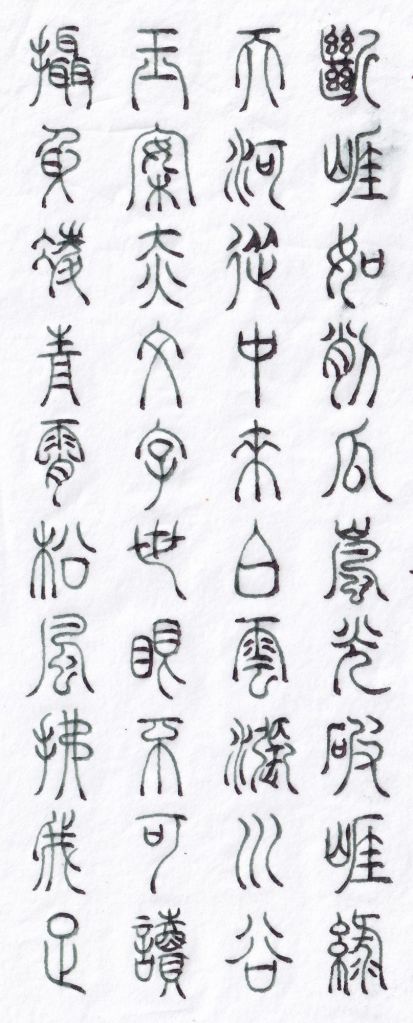 斷崖如削瓜嵐光破崖綠
天河從中來白雲漲川谷
玉案赤文字世眼不可讀
攝身凌青霄松風拂我足